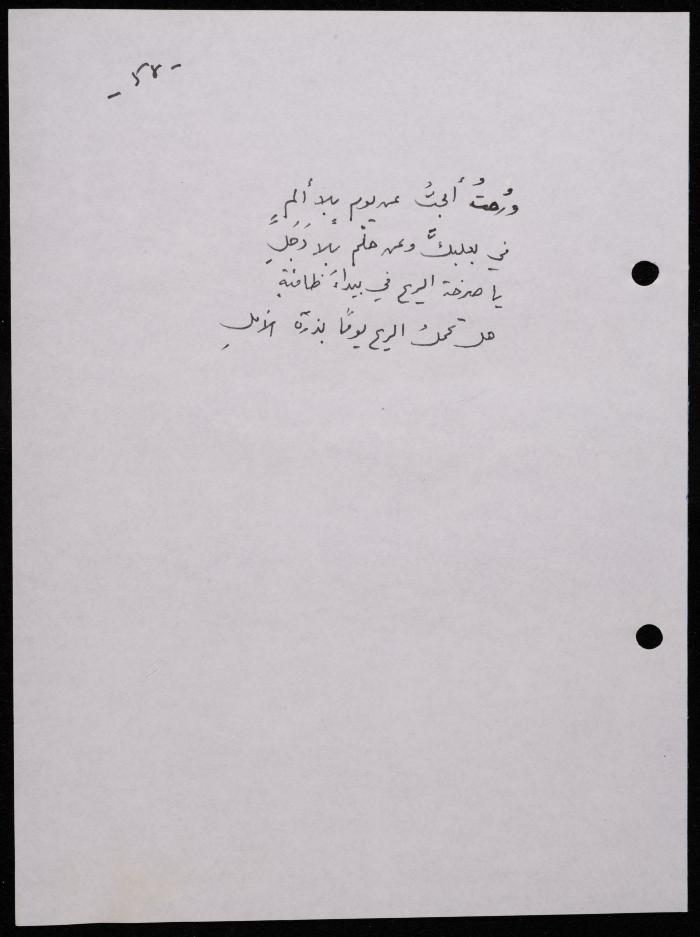 ورُحتُ أبحثُ عن يوم بلا ألمٍ
في بعلبكَّ وعن حلْم بلا دَجَلِ
يا صرخة الريح في بيداءَ ظامئةٍ
هل تحملُ الريح يومًا بذرة الأملِ